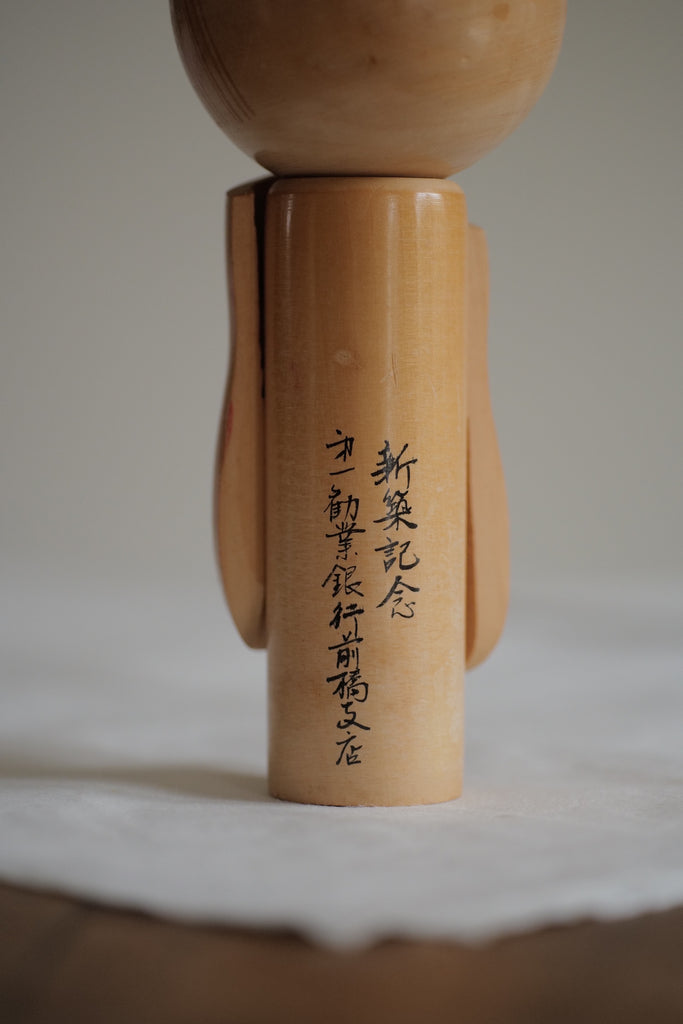 新築記念
㐧一勧業銀行前橋支店